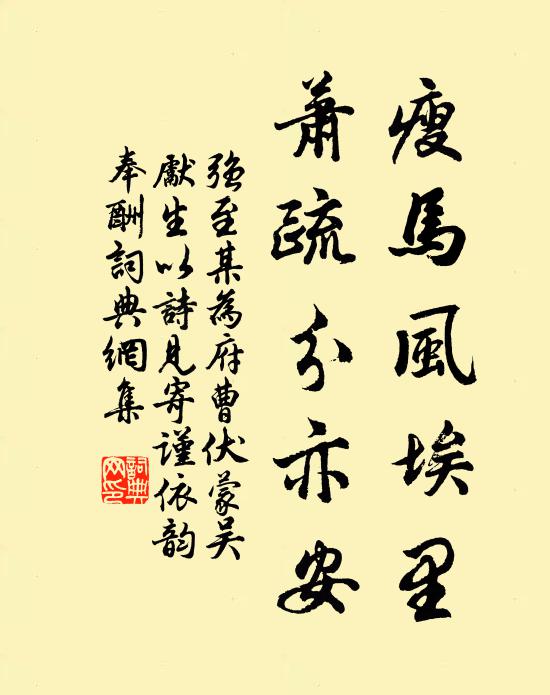 瘦馬風埃里
蕭疏分亦安
强至某為府曹伏蒙吴
獻生以詩見寄謹依韵
奉酬詞典網集
詞典
网印